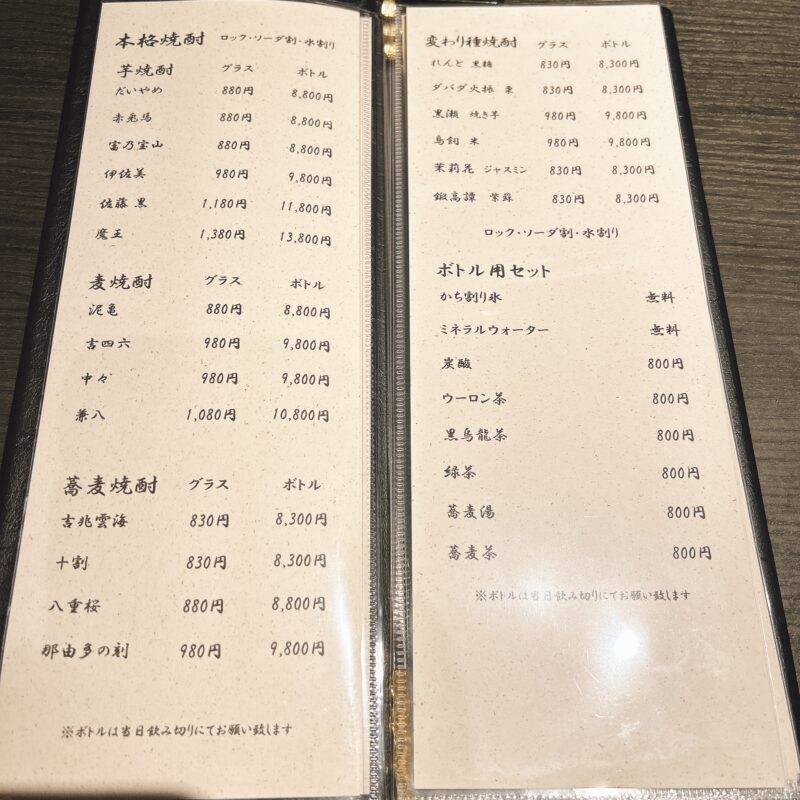 本格焼酎 ロック・ソーダ割・水割り
芋焼酎 グラス ボトル
だいやめ 880円 8,800円
赤兎馬 880円 8,800円
富乃宝山 880円 8,800円
伊佐美 980円 9,800円
佐藤 黒 1,180円 11,800円
魔王 1,380円 13,800円
麦焼酎 グラス ボトル
泥亀 880円 8,800円
吉四六 980円 9,800円
中々 980円 9,800円
兼八 1,080円 10,800円
蕎麦焼酎 グラス ボトル
吉兆雲海 830円 8,300円
十割 830円 8,300円
八重桜 880円 8,800円
那由多の刻 980円 9,800円
※ボトルは当日飲み切りにてお願い致します
変わり種焼酎 グラス ボトル
れんと 黒糖 830円 8,300円
ダバダ火振 栗 830円 8,300円
黒瀬 焼き芋 980円 9,800円
鳥飼 米 980円 9,800円
茉莉花 ジャスミン 830円 8,300円
鍛高譚 紫蘇 830円 8,300円
ロック・ソーダ割・水割り
ボトル用セット
かち割り氷 無料
ミネラルウォーター 無料
炭酸 800円
ウーロン茶 800円
黒烏龍茶 800円
緑茶 800円
蕎麦湯 800円
蕎麦茶 800円
※ボトルは当日飲み切りにてお願い致します